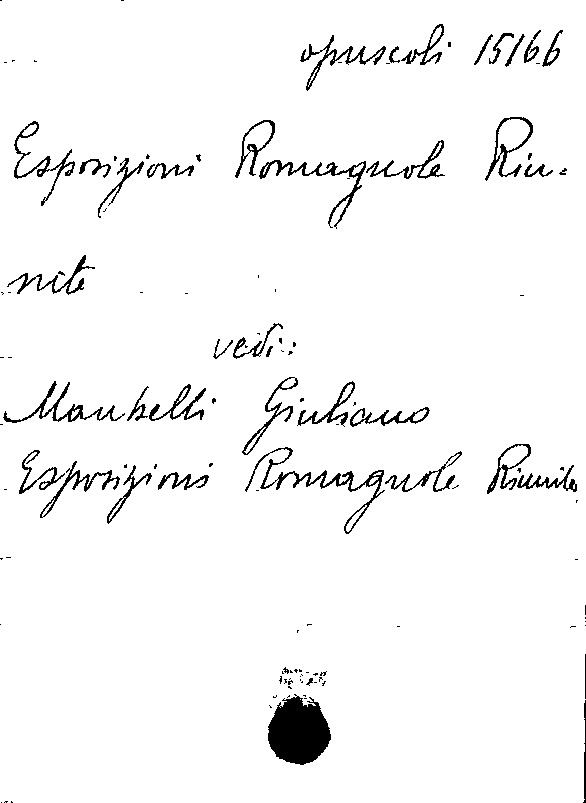 opuscoli 15166
Esposizioni Romagnole Riu=
nite
vedi:
Mambelli Giuliano
Esposizioni Romagnole Riunite